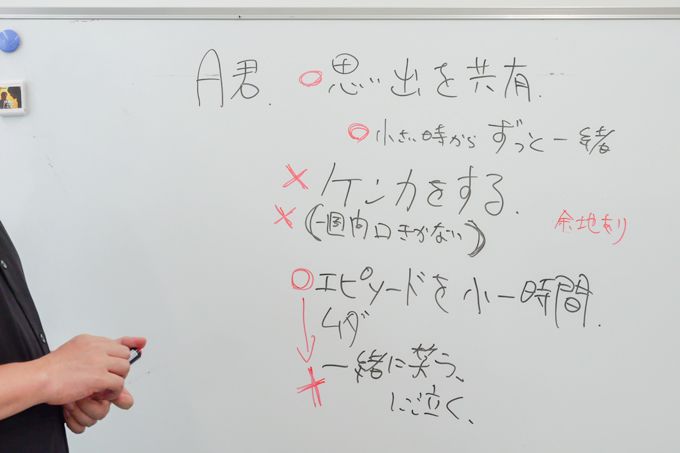 A君. ○思い出を共有.
○小さい時からずっと一緒
×ケンカをする.
×(一週間口きかない)
余地あり
○エピソードを小一時間.
ムダ
一緒に笑う、
に泣く、